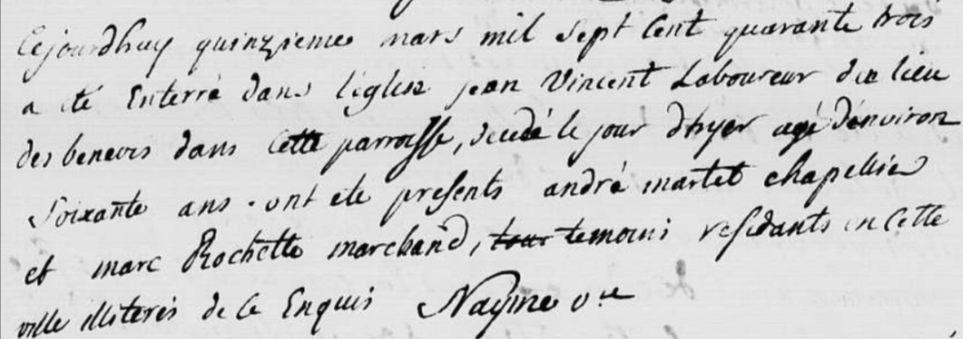 Cejourdhuy quinzieme mars mil sept cent quarante trois
a eté Enterré dans l'église jean Vincent Laboureur du lieu
des benevis dans Cette parroisse, decedé le jour dhyer agé denviron
soixante ans. ont eté presents andré martet chapellier
et marc Rochette marchand, temoins residants en Cette
ville illiterés de ce Enquis Nayme v.re